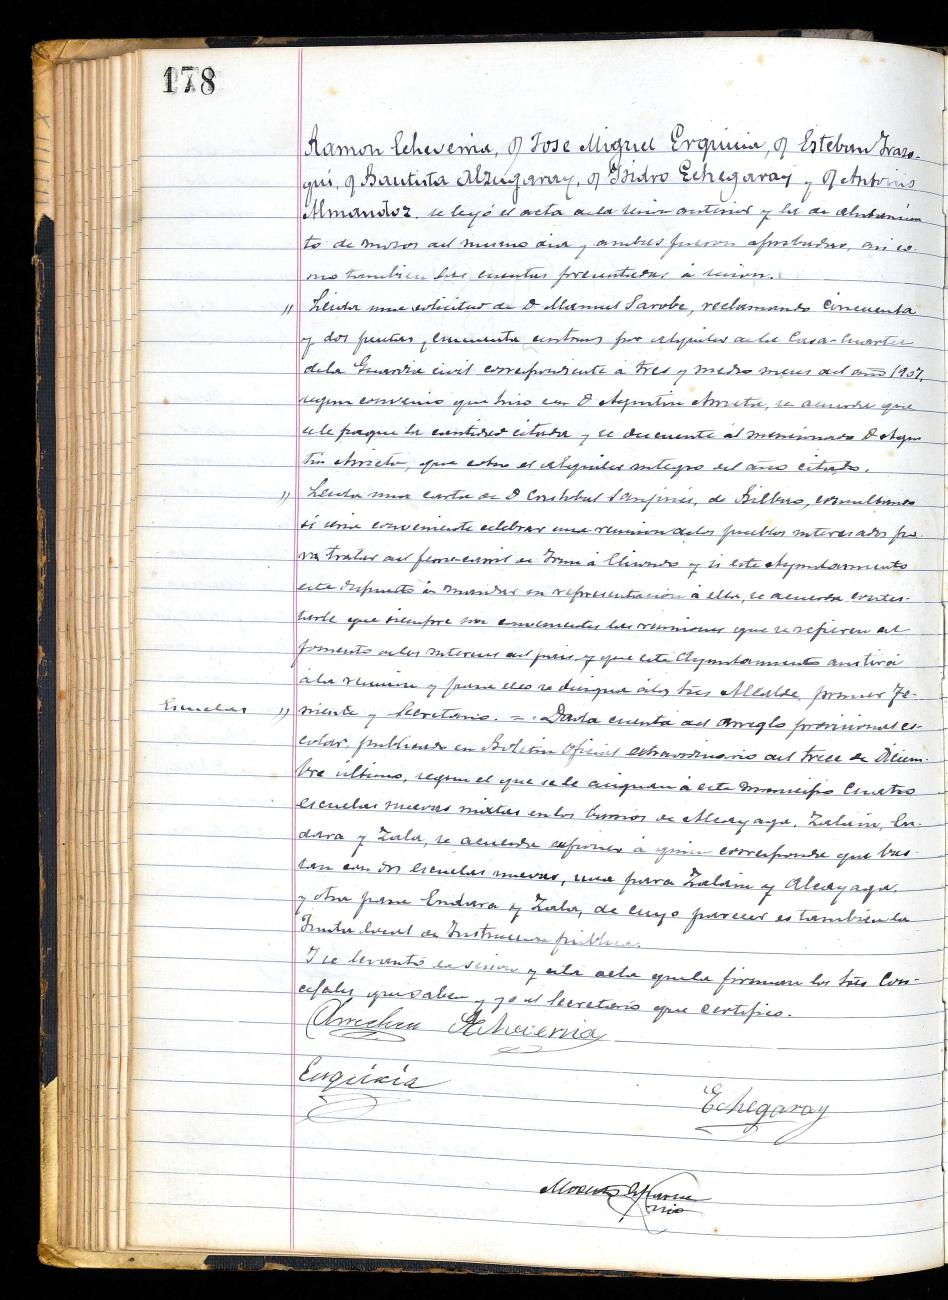 178
Ramon Echeverria, D. Jose Miguel Erquicia, D. Esteban Irazo-
qui, D. Bautista Alzugaray, D. Isidro Echegaray y D. Antonio
Almandoz se leyó el acta de la sesion anterior y la de alistamien
to de mozos del mismo dia y ambas fueron aprobadas, asi co-
mo tambien las cuentas presentadas á sesion.
" Leida una solicitud de D. Manuel Sarobe, reclamando cincuenta
y dos pesetas, cincuenta centimos por alquiler de la Casa-Cuartel
de la Guardia civil correspondiente á tres y medio meses del año 1907,
segun convenio que hizo con D. Agustin Arrieta, se acuerda que
se le pague la cantidad citada y se descuente al mencionado D. Agus
tin Arrieta, que cobró el alquiler integro del año citado.
" Leida una carta de D. Cristobal Sanginés, de Bilbao, consultando
si seria conveniente celebrar una reunion de los pueblos interesados pa-
ra tratar del ferrocarril de Irun á Elizondo y si este Ayuntamiento
está dispuesto á mandar su representacion á ella, se acuerda contes-
tarle que siempre son convenientes las reuniones que se refieren al
fomento de los intereses del pais, y que este Ayuntamiento asistirá
á la reunion y para eso se designa á los tres Alcalde, primer Te-
Escuelas " niente y Secretario. = Dada cuenta del arreglo provisional es-
colar publicado en Boletin Oficial extraordinario del trece de Diciem-
bre último, segun el que se le asignan á este Municipio cuatro
escuelas nuevas mixtas en los barrios de Alcayaga, Zalain, En-
dara y Zala, se acuerda exponer á quien corresponda que bas-
tan con dos escuelas nuevas, una para Zalain y Alcayaga
y otra para Endara y Zala, de cuyo parecer es tambien la
Junta local de Instruccion pública.
Y se levantó la sesion y esta acta que la firman los Sres Con-
cejales que saben y yo el Secretario que certifico.
Echeverria
Erquicia
Echegaray